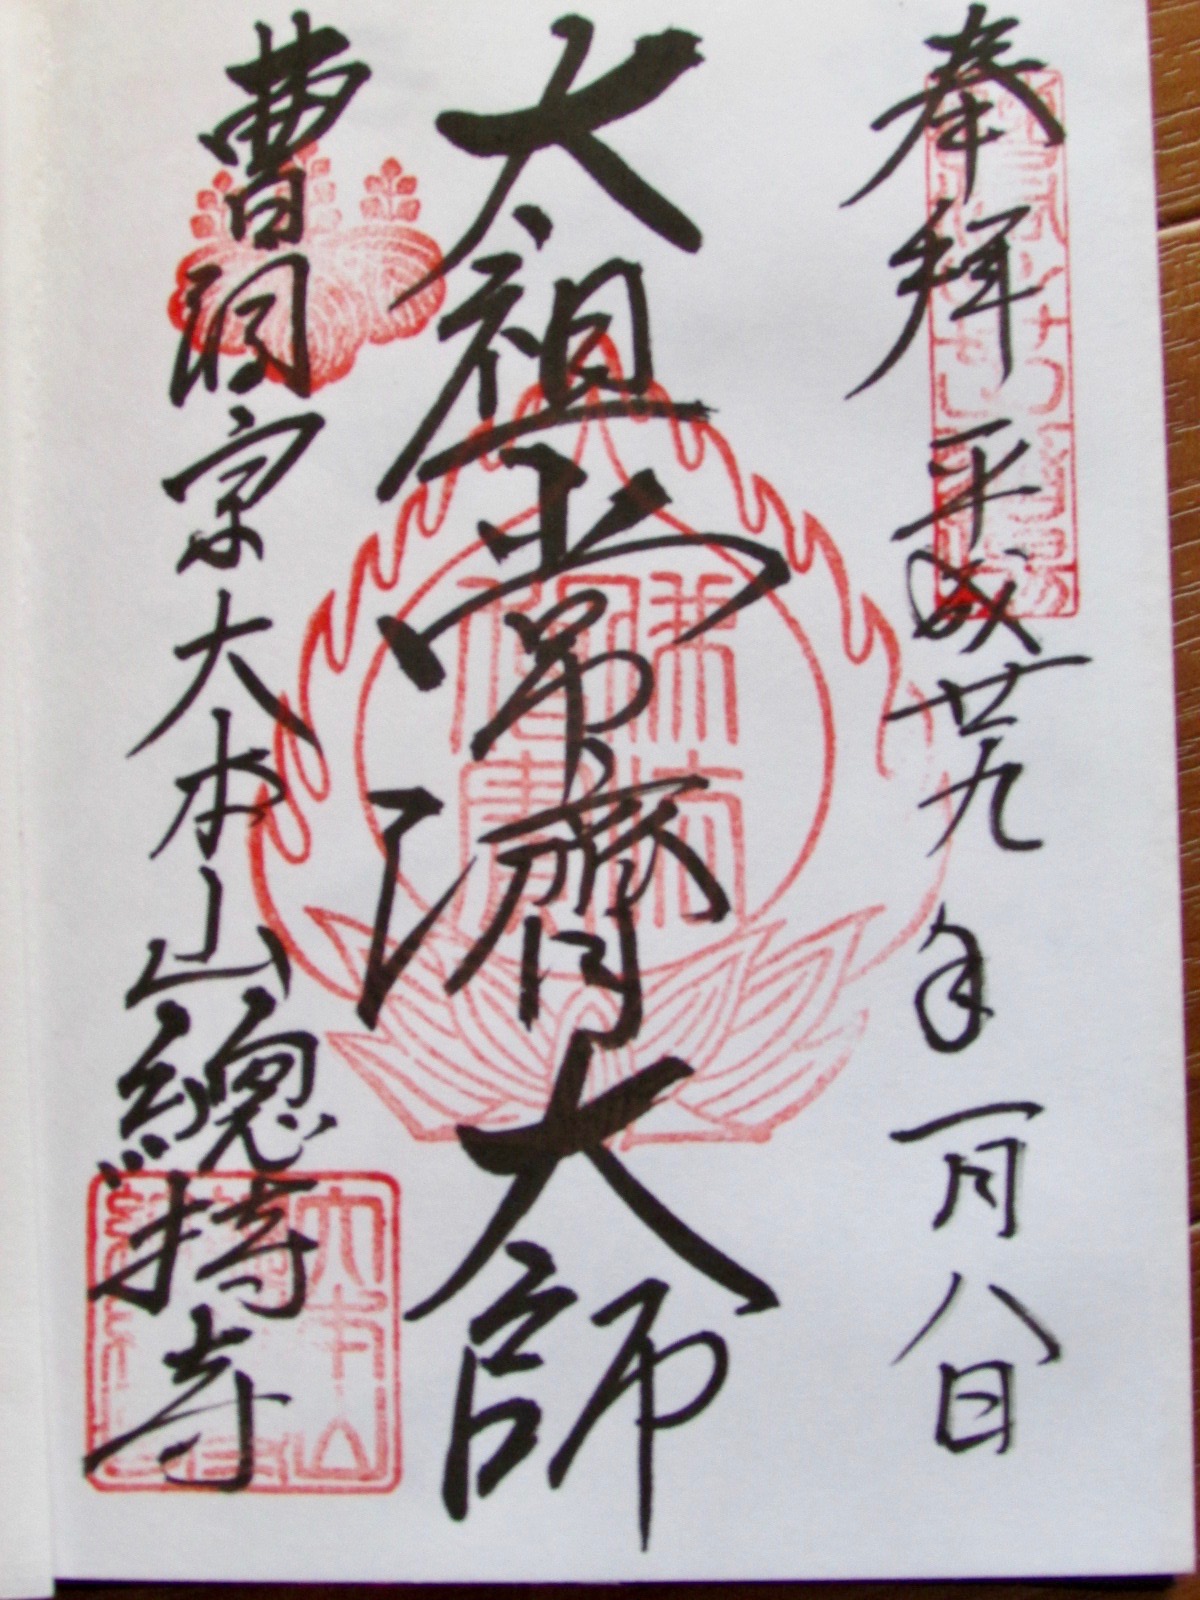 奉拝 平成廿九年一月八日
太祖常濟大師
曹洞宗大本山總持寺
大本山